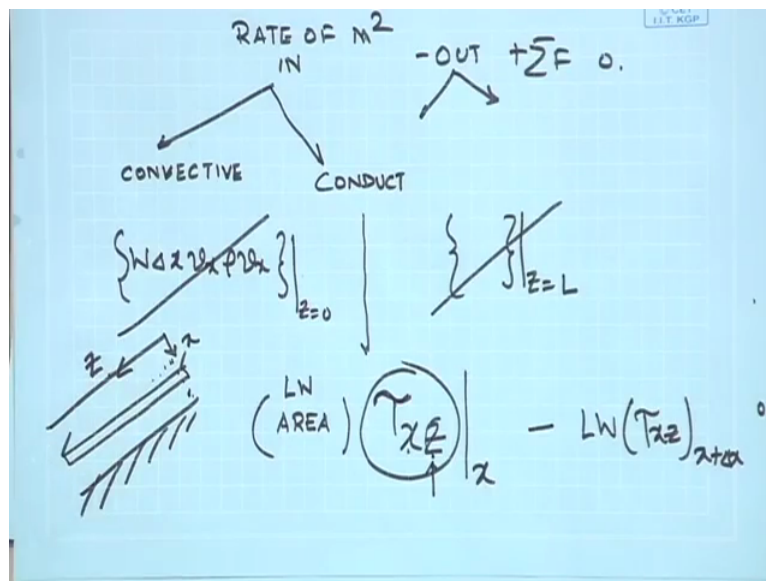 I.I.T. KGP
RATE OF M²
IN - OUT + ΣF 0.
CONVECTIVE CONDUCT
{WΔx v_x ρ v_x}|_{z=0} { }|_{z=L}
z x
(LW AREA) τ_{xz}|_x - LW(τ_{xz})_{x+Δx} 0